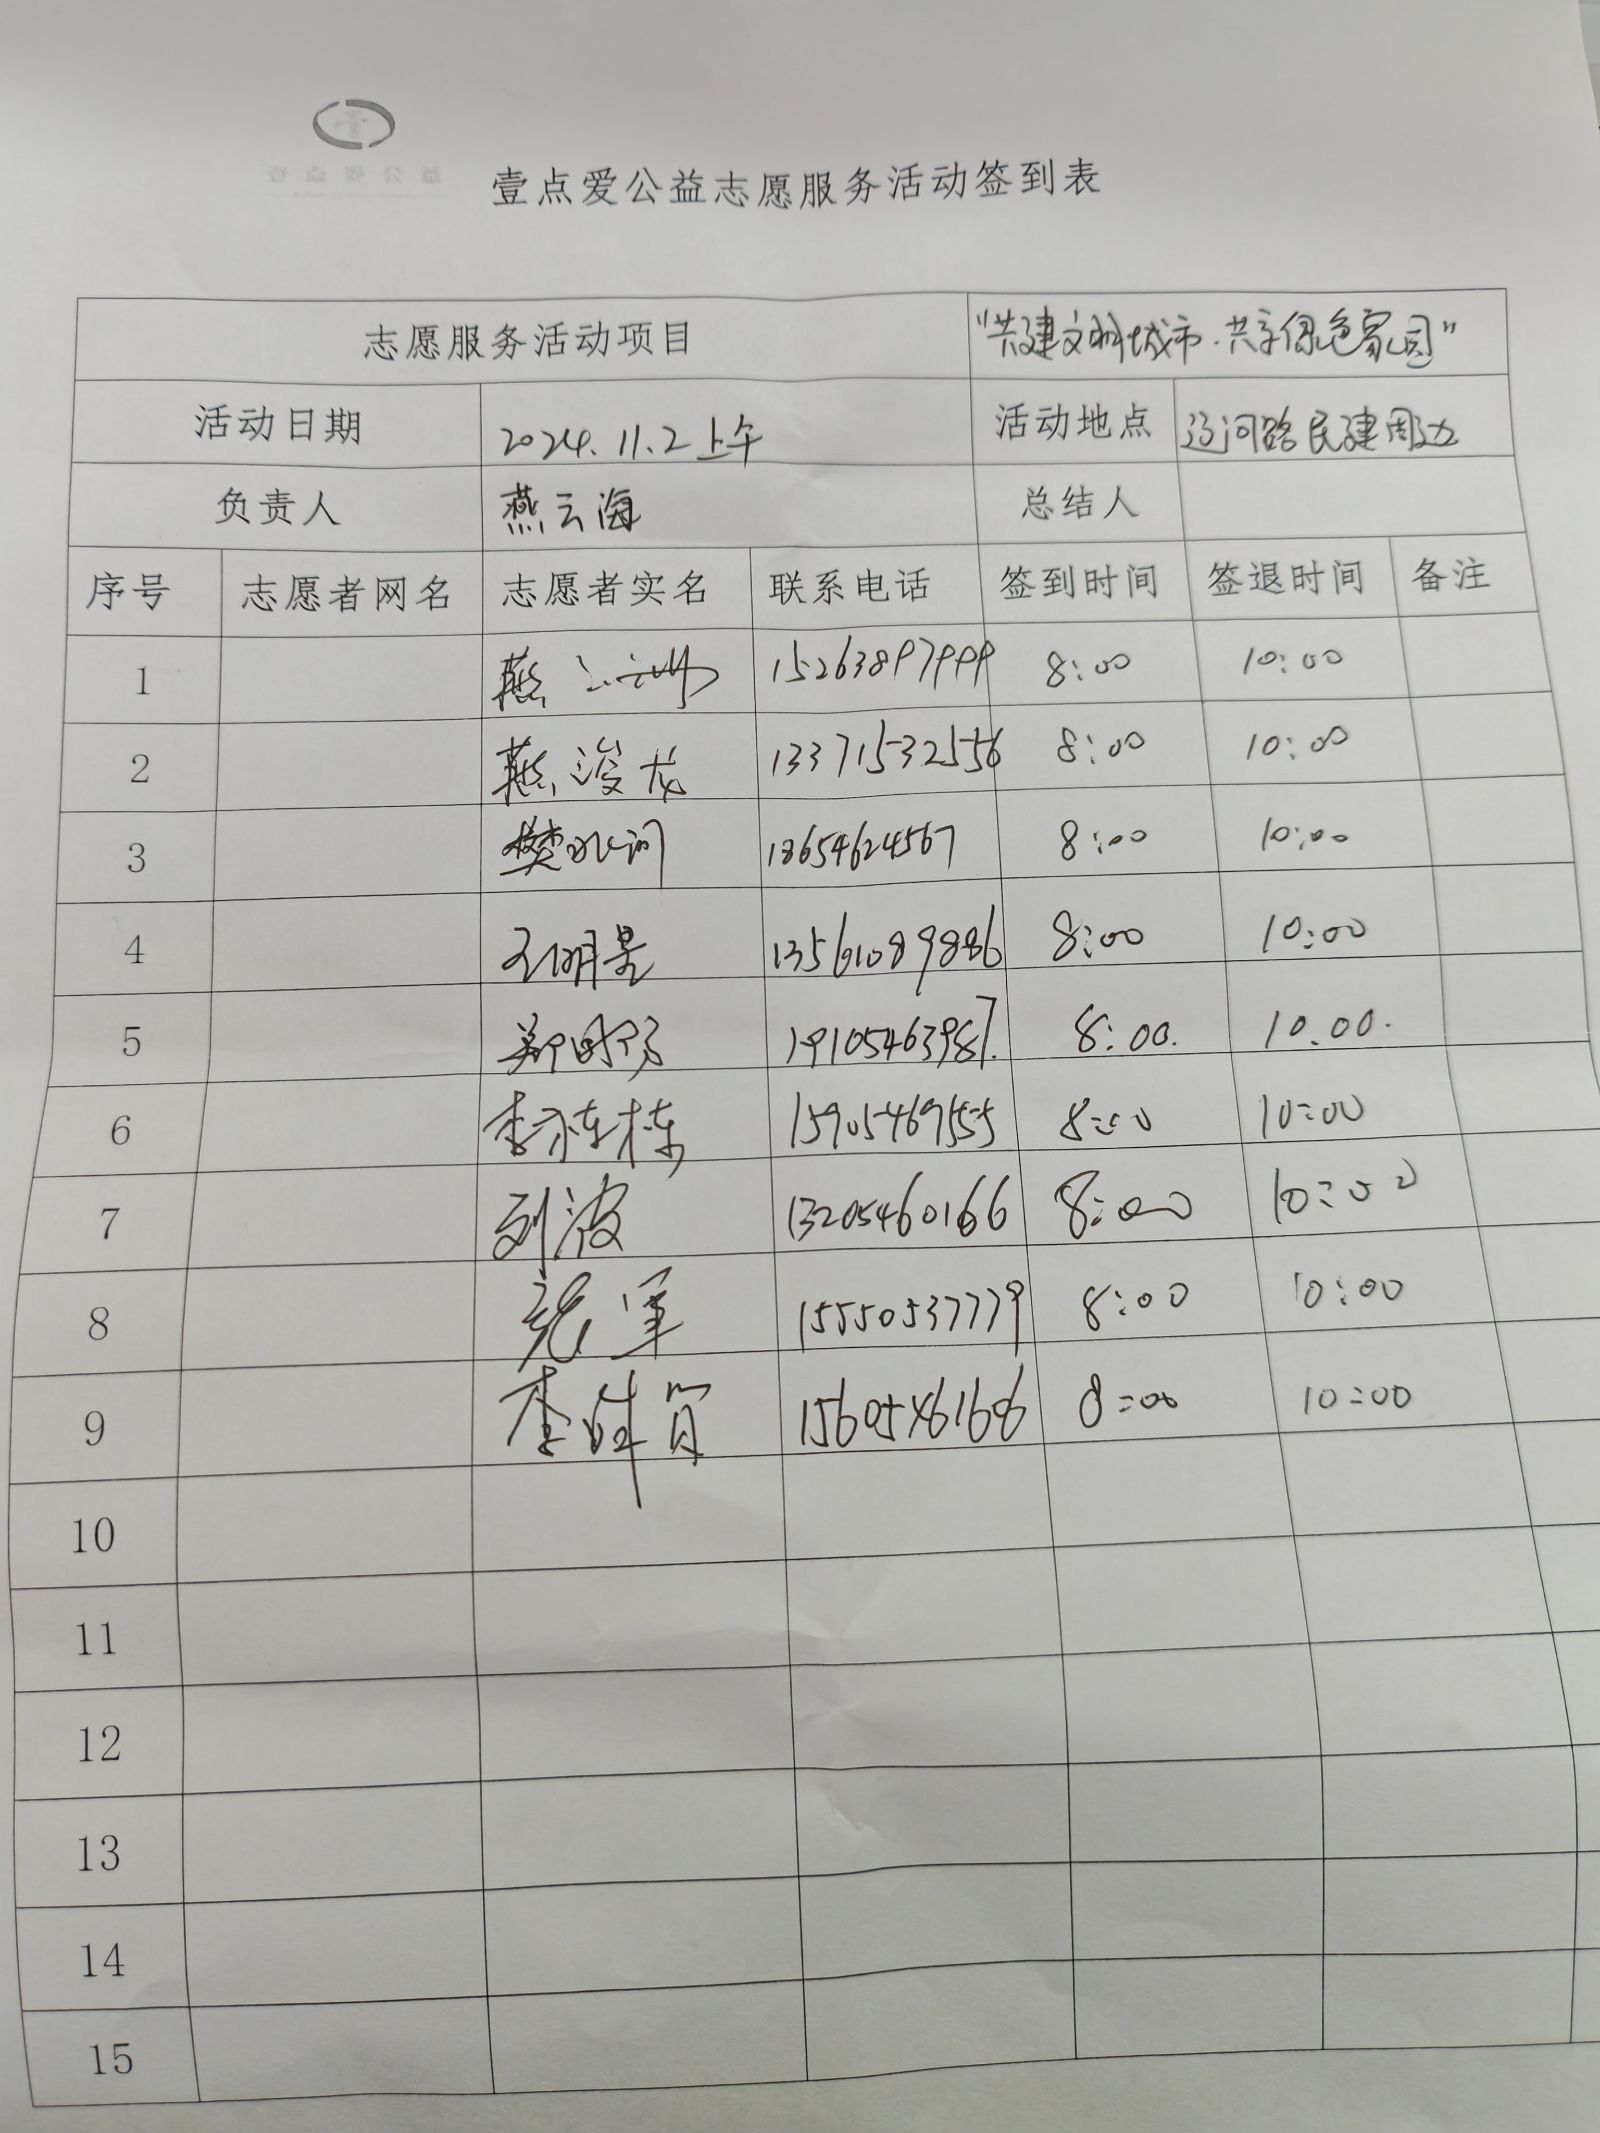 壹点爱公益志愿服务活动签到表
志愿服务活动项目 "共建文明城市·共享绿色家园"
活动日期 2024.11.2上午 活动地点 辽河路民建周边
负责人 燕云海 总结人
序号 志愿者网名 志愿者实名 联系电话 签到时间 签退时间 备注
1 燕 15263897999 8:00 10:00
2 燕浚龙 13371532556 8:00 10:00
3 樊 18654624567 8:00 10:00
4 王明景 13561089886 8:00 10:00
5 郑 19105463987. 8:00. 10.00.
6 李 栋 15905469555 8:00 10:00
7 刘波 13205460166 8:00 10:00
8 军 15550537779 8:00 10:00
9 李 15605461606 8:00 10:00
10
11
12
13
14
15